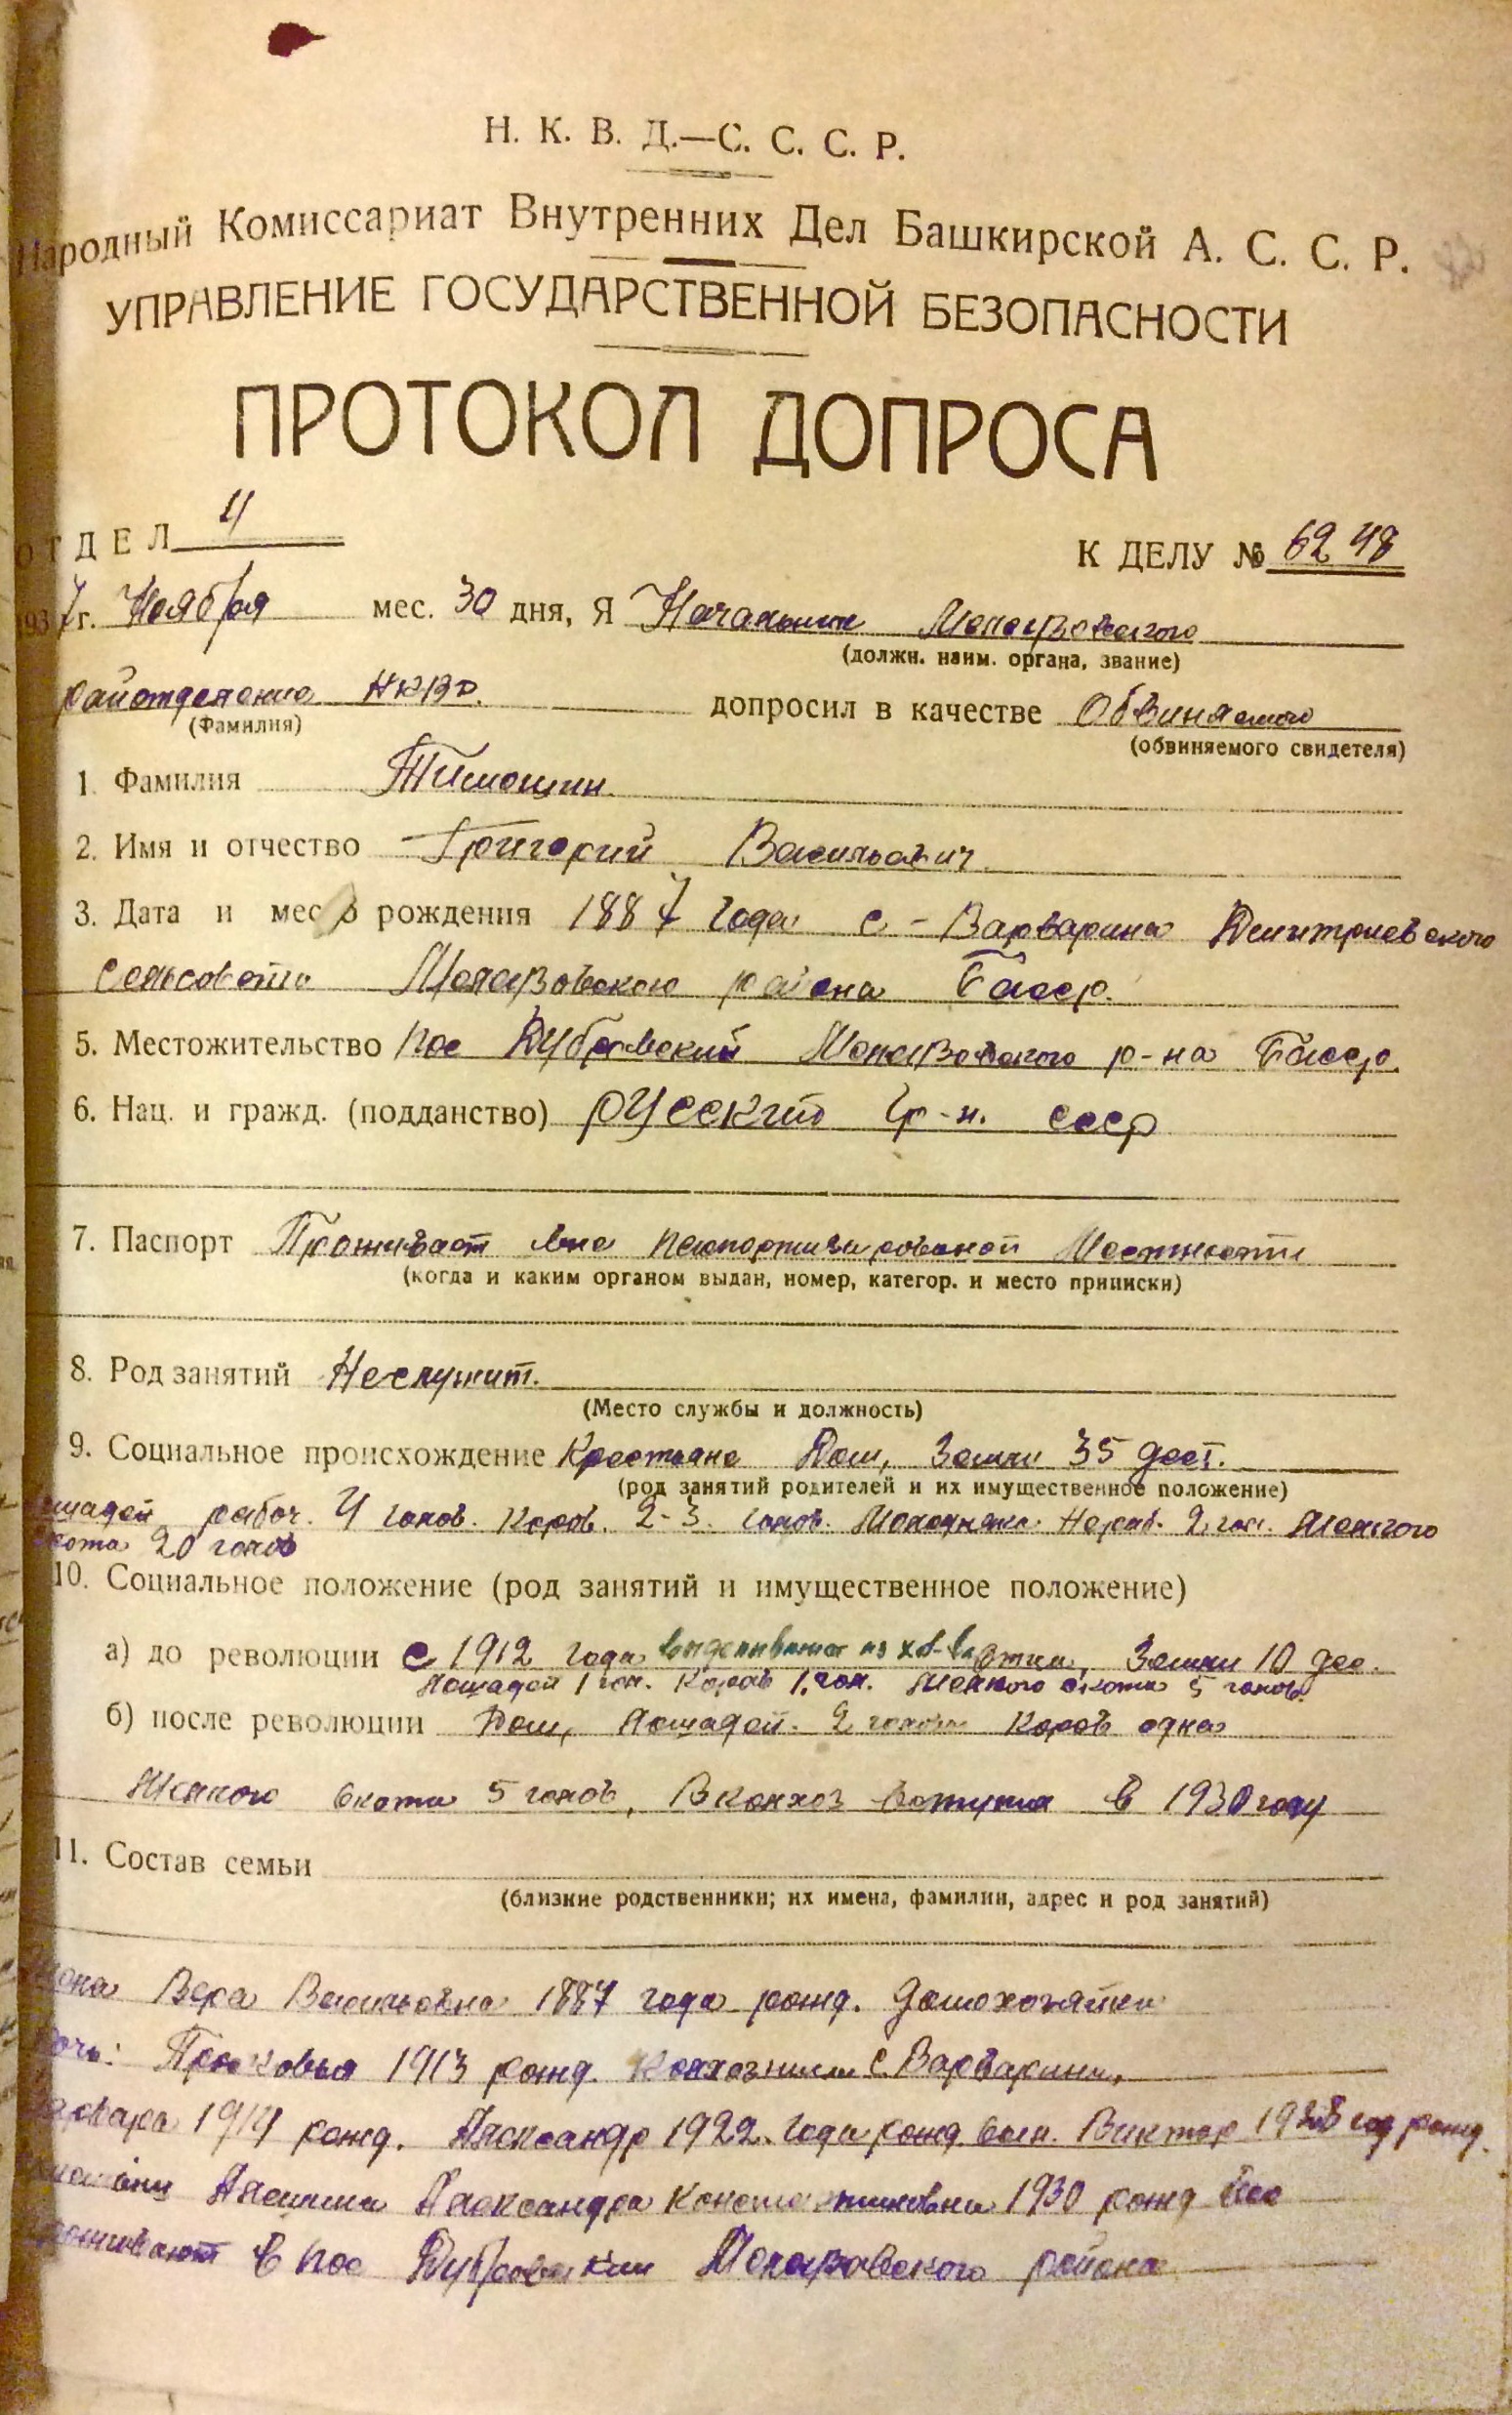 Н. К. В. Д.—С. С. С. Р.
Народный Комиссариат Внутренних Дел Башкирской А. С. С. Р.
УПРАВЛЕНИЕ ГОСУДАРСТВЕННОЙ БЕЗОПАСНОСТИ
ПРОТОКОЛ ДОПРОСА
ОТДЕЛ 4
К ДЕЛУ № 6248
1937 г. Ноября мес. 30 дня, Я Начальник Мелеузовского
(должн. наим. органа, звание)
райотделение НКВД. допросил в качестве Обвиняемого
(Фамилия) (обвиняемого свидетеля)
1. Фамилия Тимошин.
2. Имя и отчество Григорий Васильевич.
3. Дата и место рождения 1887 года с-Варварина Дмитриевского
сельсовета Мелеузовского района Басср.
5. Местожительство пос Дубровский Мелеузовского р-на Басср.
6. Нац. и гражд. (подданство) русский гр-н. ссср
7. Паспорт Проживает вне паспортизированой Местности
(когда и каким органом выдан, номер, категор. и место приписки)
8. Род занятий Неслужит.
(Место службы и должность)
9. Социальное происхождение Крестьяне Дом, Земли 35 дест.
(род занятий родителей и их имущественное положение)
лошадей рабоч. 4 голов. Коров. 2-3. голов. Молодняка Нераб. 2 гол. Мелкого
скота 20 голов
10. Социальное положение (род занятий и имущественное положение)
а) до революции с 1912 года из хоз-ва отца, Земли 10 дес.
Лошадей 1 гол. Коров 1. гол. Мелкого скота 5 голов.
б) после революции Дом, Лошадей. 2 головы Коров одна
Мелкого скота 5 голов, В колхоз вступил в 1930 году
11. Состав семьи
(близкие родственники; их имена, фамилии, адрес и род занятий)
жена Вера Васильевна 1887 года рожд. домохозяйка
дочь: Прасковья 1913 рожд. Колхозница с. Варварина,
Варвара 1919 рожд. Александр 1922. года рожд. сын. Виктор 1928 год рожд.
Александра Константиновна 1930 рожд все
проживают в пос Дубровский Мелеузовского района